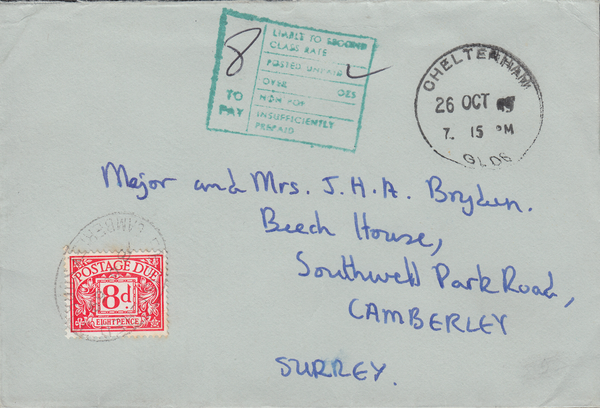 8
TO
PAY
LIABLE TO SECOND
CLASS RATE
POSTED UNPAID
OVER OZS
NOM FOR
INSUFFICIENTLY
PREPAID
CHELTENHAM
26 OCT
7. 15 PM
GLOS
Major and Mrs. J.H.A. Bryden.
Beech House,
Southwell Park Road,
CAMBERLEY
SURREY.
POSTAGE DUE
8d.
EIGHTPENCE